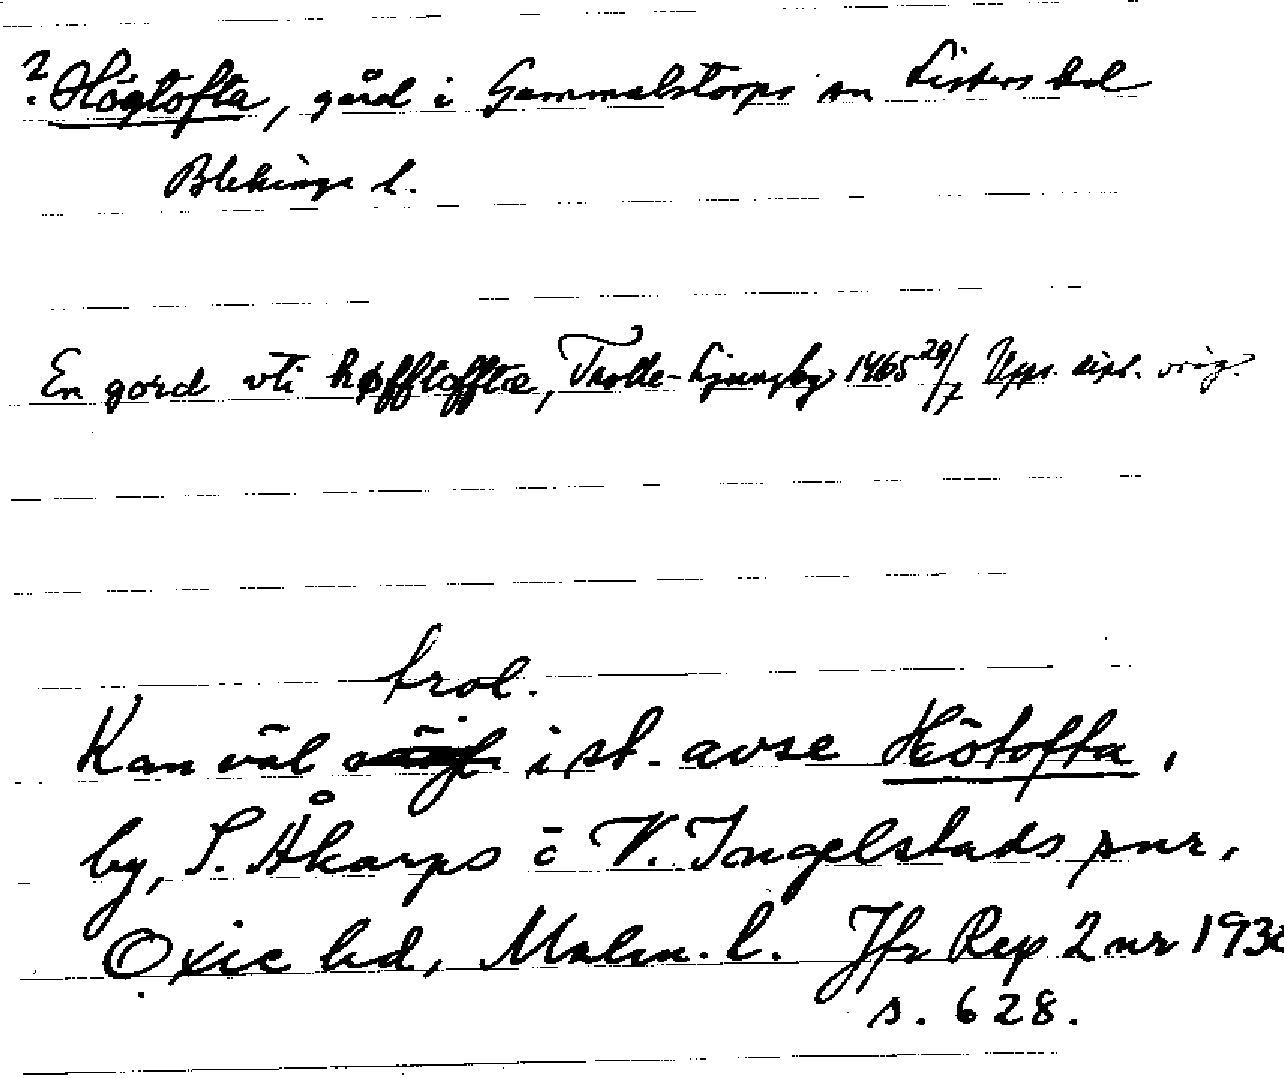 ? Högtofta, gård i Gammalstorps sn Listers hd
Blekinge l.
En gord vti høfftofftæ, Trolle-Ljungby 1465 29/7 Upps. dipl. orig.
trol.
Kan väl i st. avse Hötofta,
by, S. Åkarps o V. Ingelstads snr,
Oxie hd, Malm. l. Jfr Rep 2 nr
s. 628.